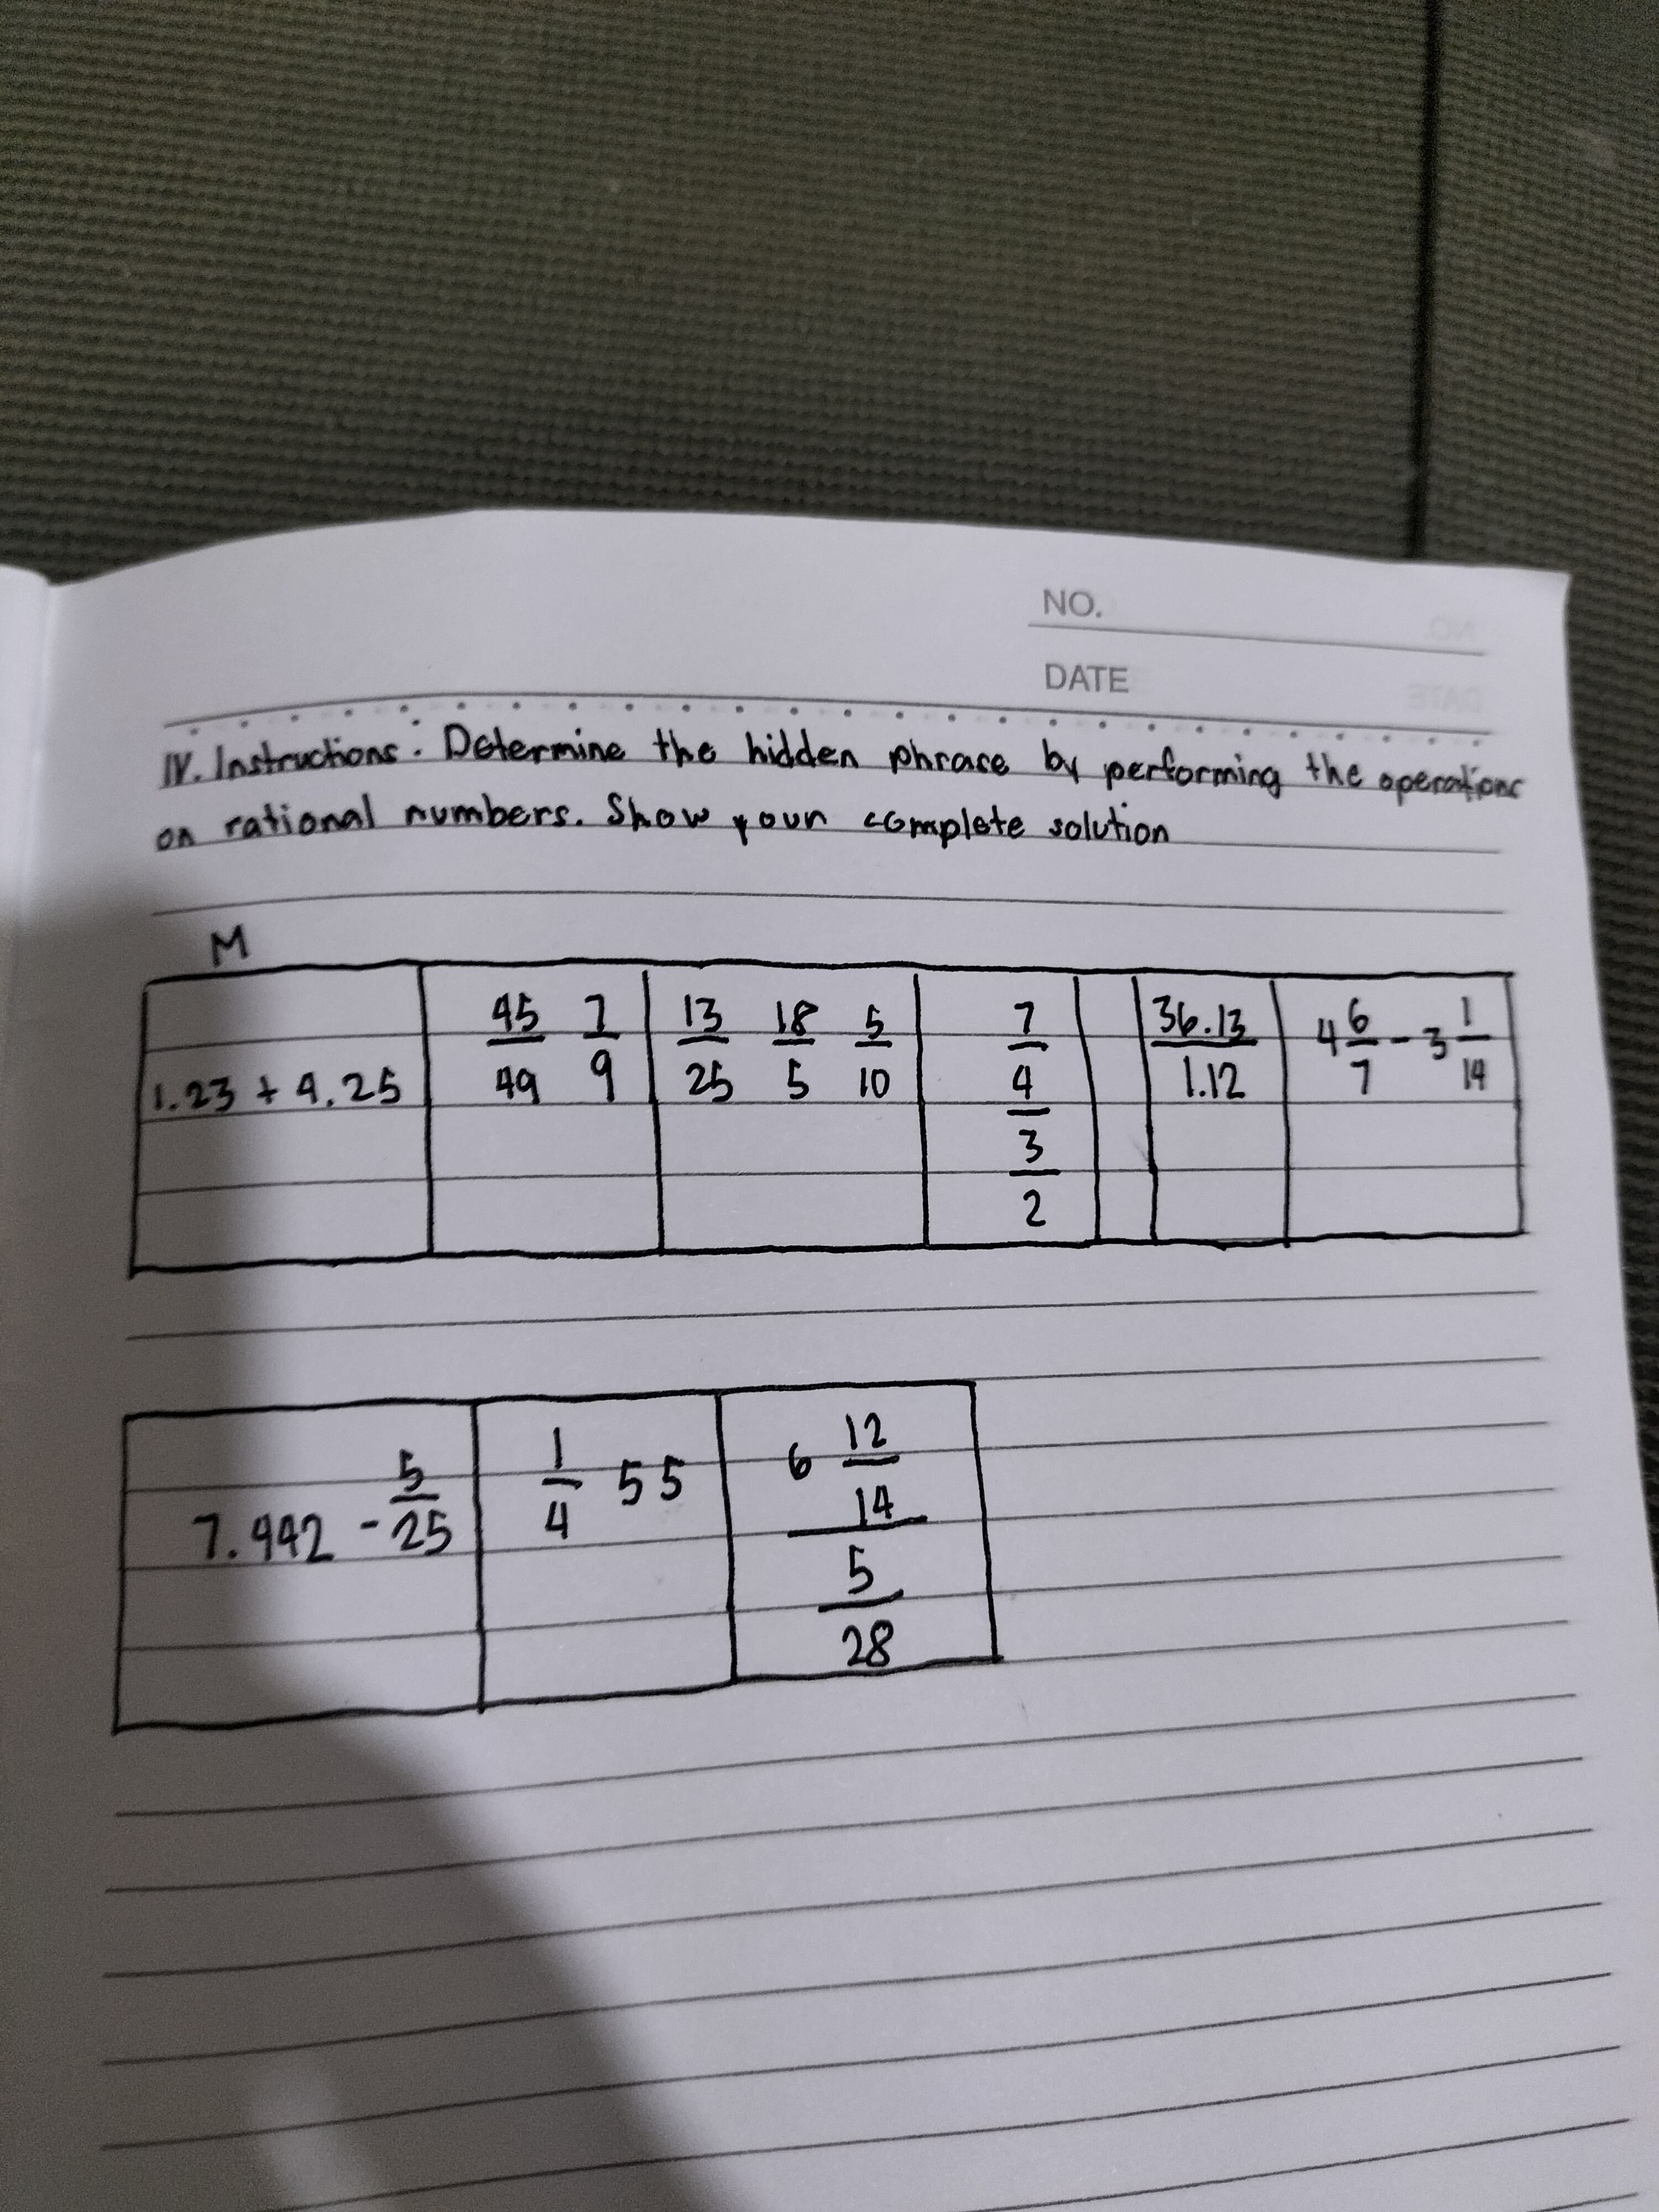 NO.
DATE
IV. Instructions: Determine the hidden phrase by performing the operations
on rational numbers. Show your complete solution
M
1.23 + 4.25
45/49 7/9
13/25 18/5 5/10
7/4/3/2
36.13/1.12
4 6/7 - 3 1/14
7.442 - 5/25
1/4 55
6 12/14 / 5/28